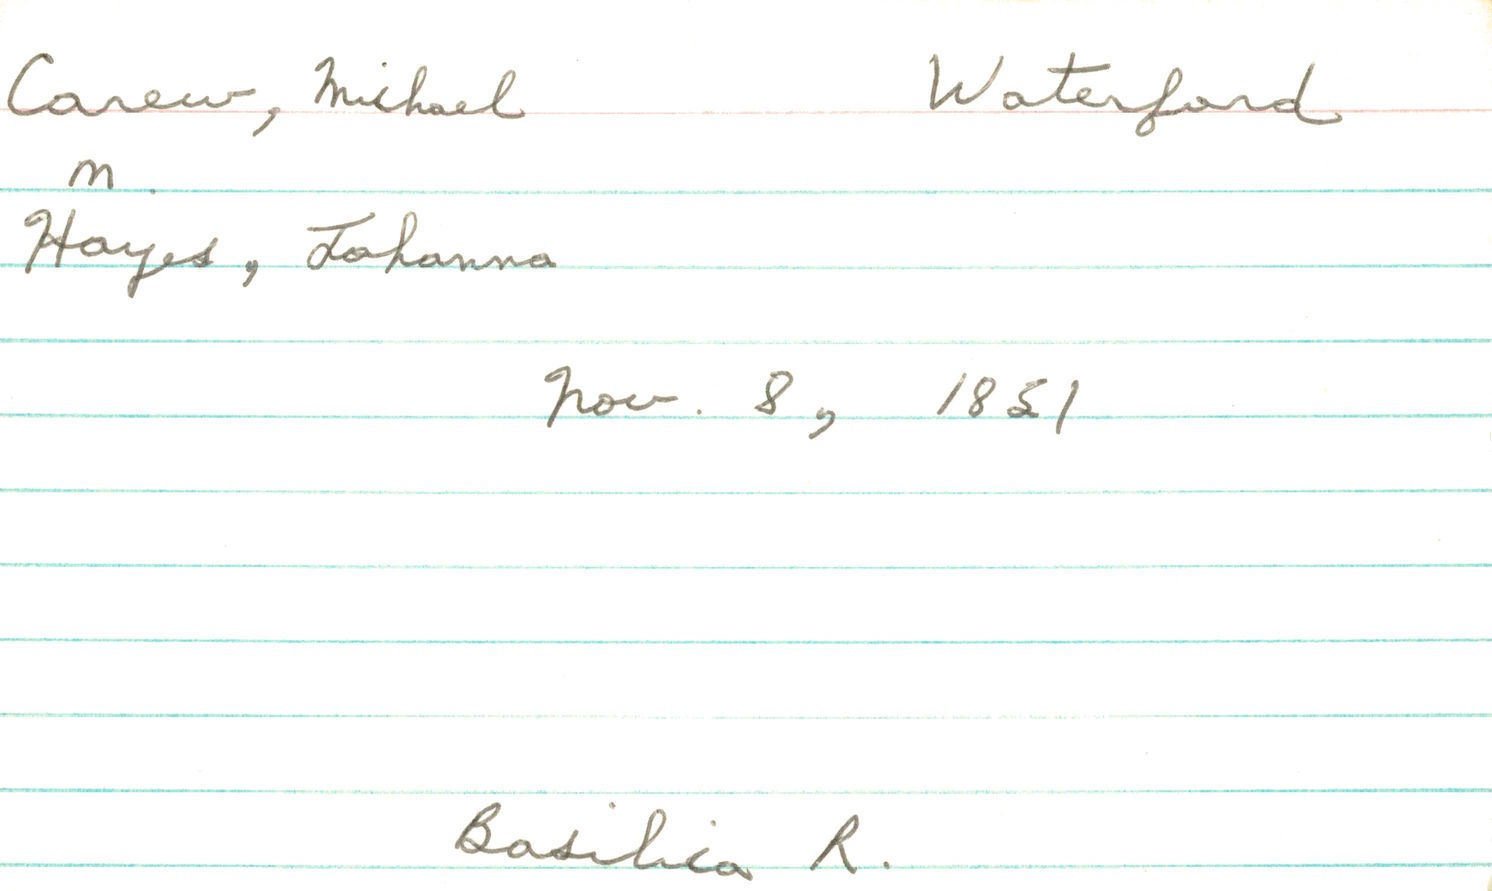 Carew, Michael Waterford
m.
Hayes, Johanna
Nov. 8, 1851
Basilica R.